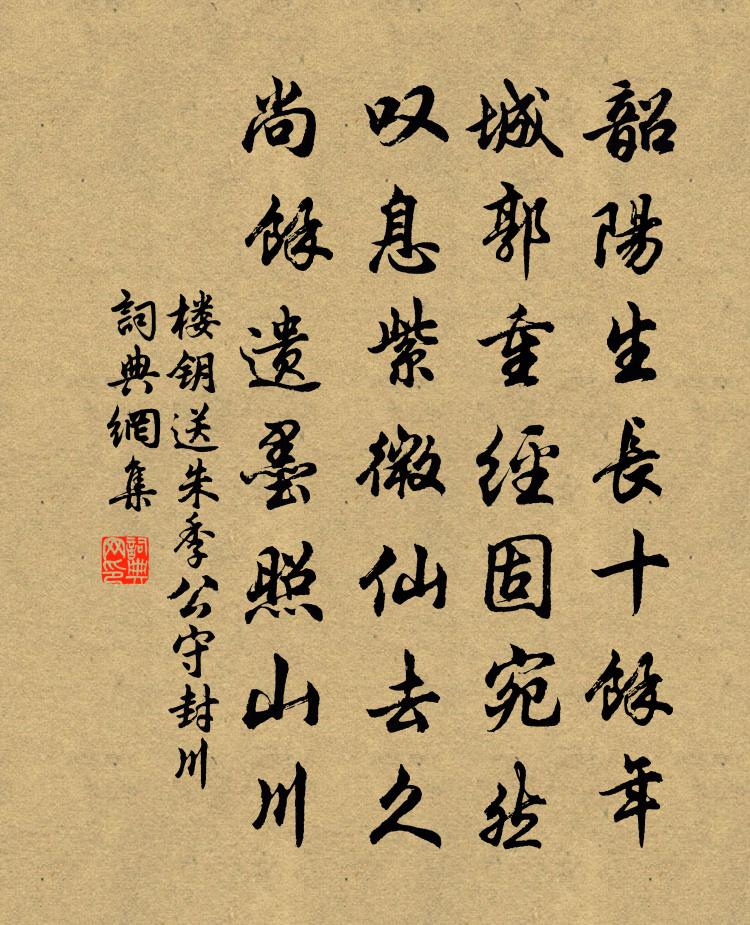 韶陽生長十餘年
城郭重經固宛然
叹息紫微仙去久
尚餘遗墨照山川
楼钥送朱季公守封川
詞典網集
詞典网印